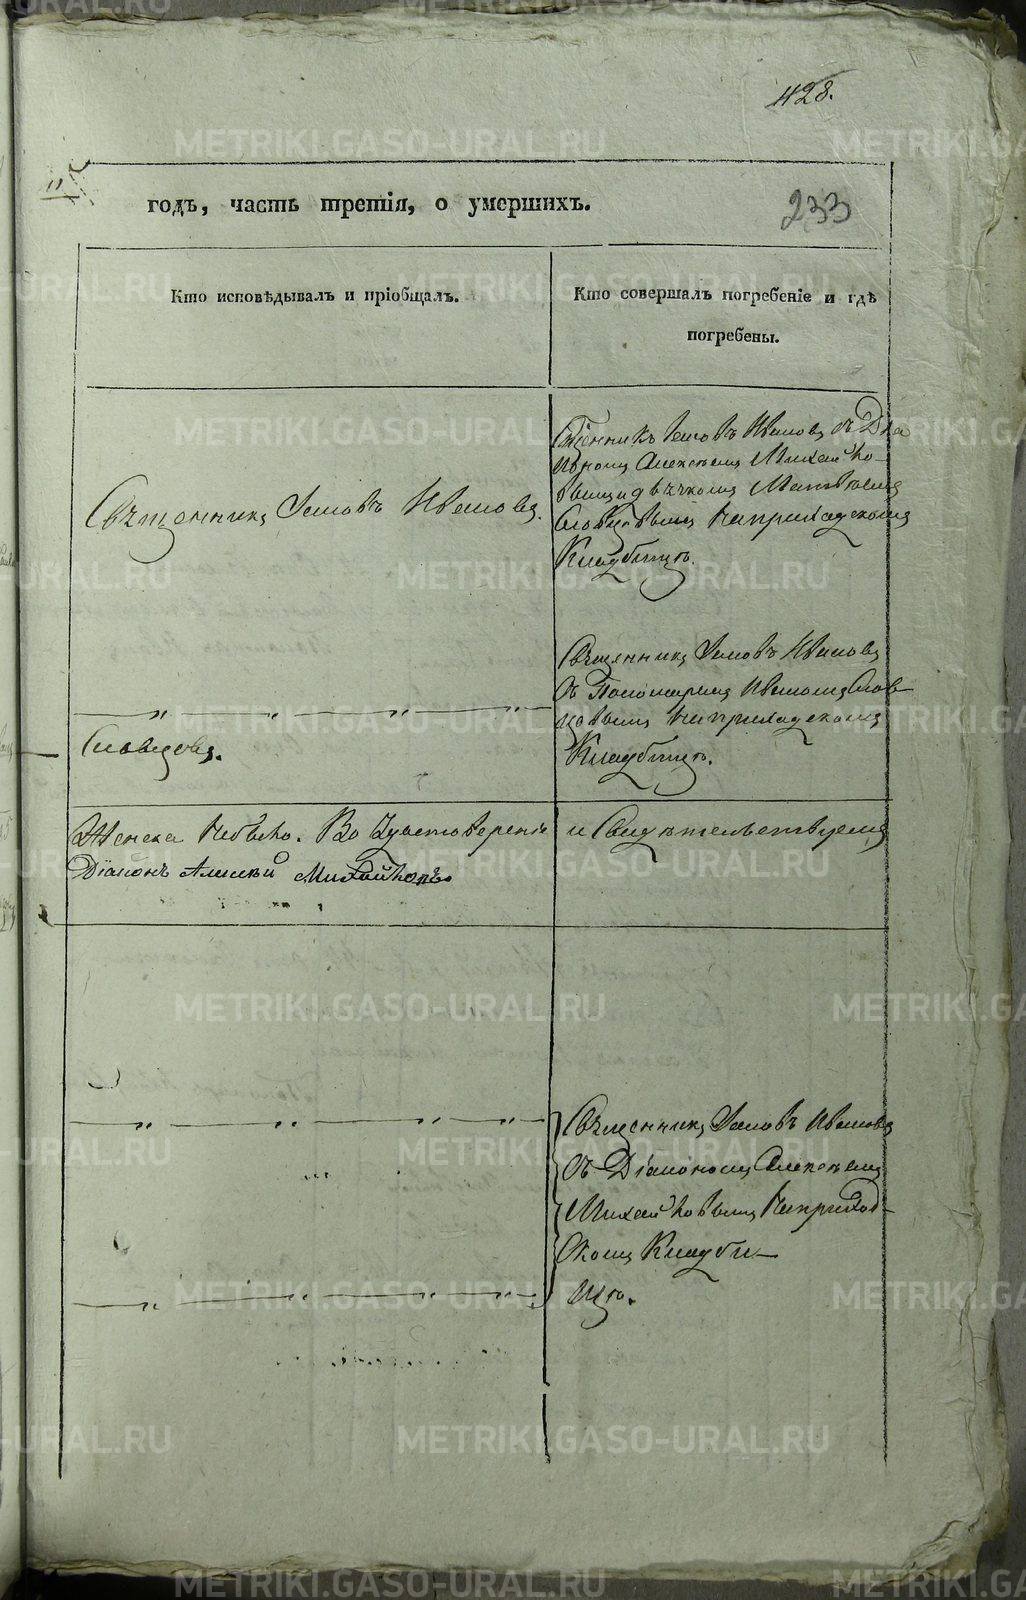 428.
233
годъ, часть третія, о умершихъ.
Кто исповѣдывалъ и пріобщалъ.
Кто совершалъ погребеніе и гдѣ
погребены.
Священникъ Іаковъ Ивановъ.
Сщенникъ Іаковъ Ивановъ съ Діа
кономъ Алексѣемъ Михайло-
вымъ и дьячкомъ Матвѣемъ
Словцовымъ на приходскомъ
Кладбищѣ.
Священникъ Іаковъ Ивановъ
съ Пономаремъ Иваномъ Слов-
цовымъ на приходскомъ
Кладбищѣ.
— „ — „ — „ — „
Словцовъ.
Женска небыло. Во Удостовереніе и Свидѣтельствуемъ
Діаконъ Алексѣй Михайловъ
— „ — „ — „ — „
Священникъ Іаковъ Ивановъ
съ Діакономъ Алексѣемъ
Михайловымъ на приход-
скомъ Кладби-
щѣ.
— „ — „ — „ — „
METRIKI.GASO-URAL.RU